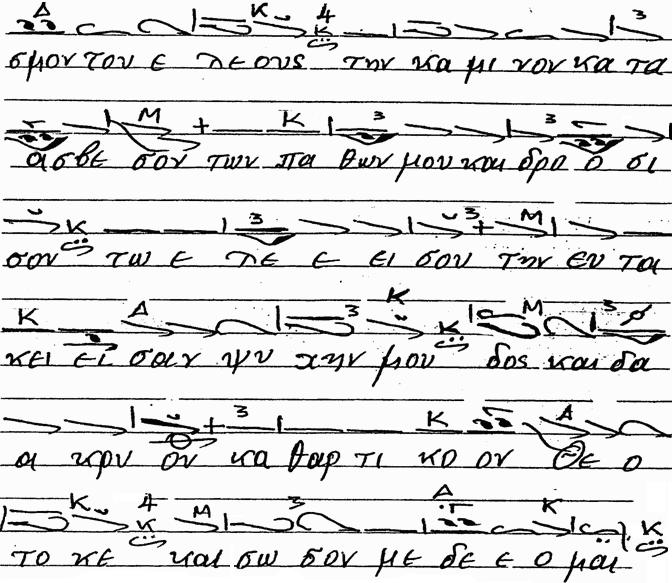 σμον του ε λε ους την κα μι νον κα τα
α σβε σον των πα θων μου και δρο ο σι
σον τω ε λε ε ει σου την εν τα
κει ει σαν ψυ χην μου δος και δα
α κρυ ον κα θαρ τι κο ον Θε ο
το κε και σω σον με δε ε ο μαι